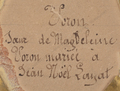 Voron
Sœur de Magdeleine
Voron mariée à
Jean Noël